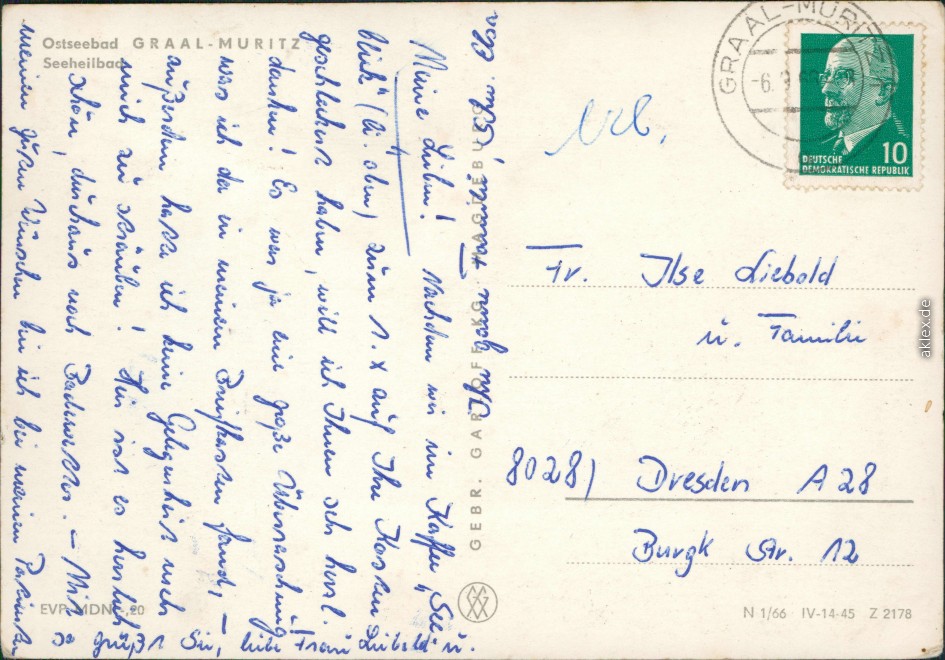 Ostseebad GRAAL-MÜRITZ
Seeheilbad
Meine Lieben! Nachdem wir im Kaffee „See-
blick" (li. oben) zum 1. x auf Ihre Kosten
geschlemmt haben, will ich Ihnen sehr herzl.
danken! Es war ja eine große Überraschung
was ich da in meinem Briefkasten fand, –
außerdem hatte ich keine Gelegenheit mich
mich zu sträuben! Hier ist es herrlich
schön, durchaus noch Badewetter. – Mit
meinen guten Wünschen bin ich bei meinen Patienten
so grüßt Sie, liebe Frau Liebold u.
Ihre ganze Familie, Ihre
GEBR. GAROFF KG. MAGDEBURG
EVP MDN -,20
GRAAL-MÜRITZ
-6.9.66
DEUTSCHE
DEMOKRATISCHE REPUBLIK
10
Fr. Ilse Liebold
u. Familie
8028/ Dresden A 28
Burgk Str. 12
N 1/66 IV-14-45 Z 2178
aklex.de